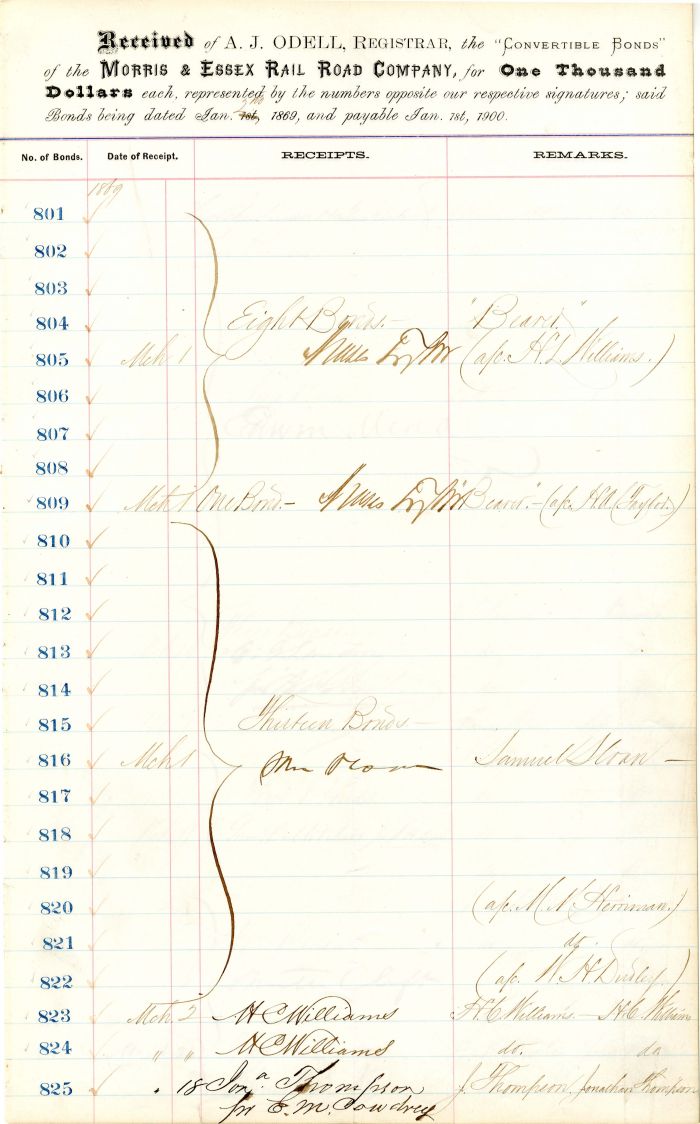 Received of A. J. ODELL, REGISTRAR, the "CONVERTIBLE BONDS"
of the MORRIS & ESSEX RAIL ROAD COMPANY, for One Thousand
Dollars each, represented by the numbers opposite our respective signatures; said
Bonds being dated Jan. 1st, 1869, and payable Jan. 1st, 1900.
No. of Bonds. Date of Receipt. RECEIPTS. REMARKS.
1869
801
802
803
804 Eight Bonds.— "Bearer."
805 Mch 1 (a/c. H. L. Williams.)
806
807
808
809 Mch 1 One Bond.— "Bearer."—(a/c. Taylor.)
810
811
812
813
814
815 Thirteen Bonds—
816 Mch 1 Samuel Sloan—
817
818
819
820 (a/c. Herriman.)
821 do.
822 (a/c. W. H.
823 Mch. 2 H C Williams H. C. Williams — H. C. Williams
824 " " H C Williams do. do
825 " 18 Jon.a Thompson J. Thompson. Jonathan Thompson
pr E. M. Cowdrey